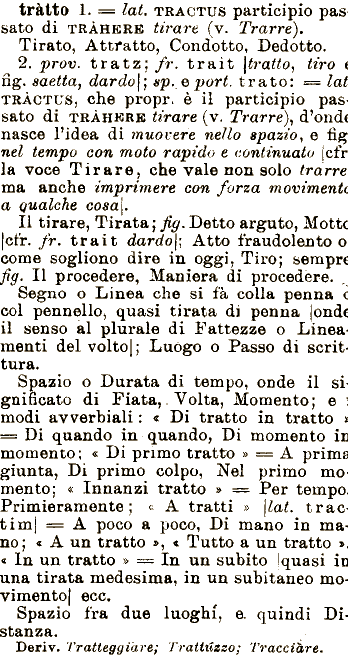 tràtto 1. = lat. TRACTUS participio pas-
sato di TRÀHERE tirare (v. Trarre).
Tirato, Attratto, Condotto, Dedotto.
2. prov. tratz; fr. trait |tratto, tiro e
fig. saetta, dardo|; sp. e port. trato: = lat
TRÀCTUS, che propr. è il participio pas-
sato di TRÀHERE tirare (v. Trarre), d'onde
nasce l'idea di muovere nello spazio, e fig
nel tempo con moto rapido e continuato |cfr
la voce Tirare, che vale non solo trarre
ma anche imprimere con forza movimento
a qualche cosa|.
Il tirare, Tirata; fig. Detto arguto, Motto
|cfr. fr. trait dardo|; Atto fraudolento o
come sogliono dire in oggi, Tiro; sempre
fig. Il procedere, Maniera di procedere.
Segno o Linea che si fà colla penna o
col pennello, quasi tirata di penna |onde
il senso al plurale di Fattezze o Linea-
menti del volto|; Luogo o Passo di scrit-
tura.
Spazio o Durata di tempo, onde il si-
gnificato di Fiata, Volta, Momento; e i
modi avverbiali: « Di tratto in tratto »
= Di quando in quando, Di momento in
momento; « Di primo tratto » = A prima
giunta, Di primo colpo, Nel primo mo-
mento; « Innanzi tratto » = Per tempo,
Primieramente; « A tratti » |lat. trac-
tim| = A poco a poco, Di mano in ma-
no; « A un tratto », « Tutto a un tratto »,
« In un tratto » = In un subito |quasi in
una tirata medesima, in un subitaneo mo-
vimento| ecc.
Spazio fra due luoghi, e quindi Di-
stanza.
Deriv. Tratteggiàre; Trattúzzo; Tracciàre.